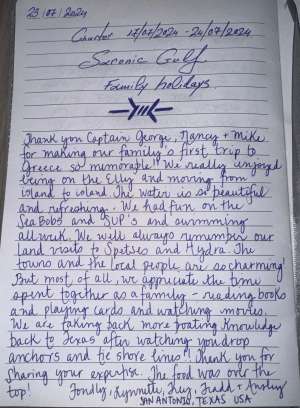 23/07/2024
Charter 17/07/2024 - 24/07/2024
Saronic Gulf
Family holidays
Thank you Captain George, Nancy & Mike
for making our family's first trip to
Greece so memorable!! We really enjoyed
being on the Elly and moving from
island to island. The water is so beautiful
and refreshing. We had fun on the
SeaBobs and SUP's and swimming
all week. We will always remember our
land visits to Spetses and Hydra. The
towns and the local people are so charming!
But most of all, we appreciate the time
spent together as a family - reading books
and playing cards and watching movies.
We are taking back more boating knowledge
back to Texas after watching you drop
anchors and tie shore lines!! Thank you for
sharing your expertise. The food was over the
top! Fondly, Lynnette, Trey,
SAN ANTONIO, TEXAS USA